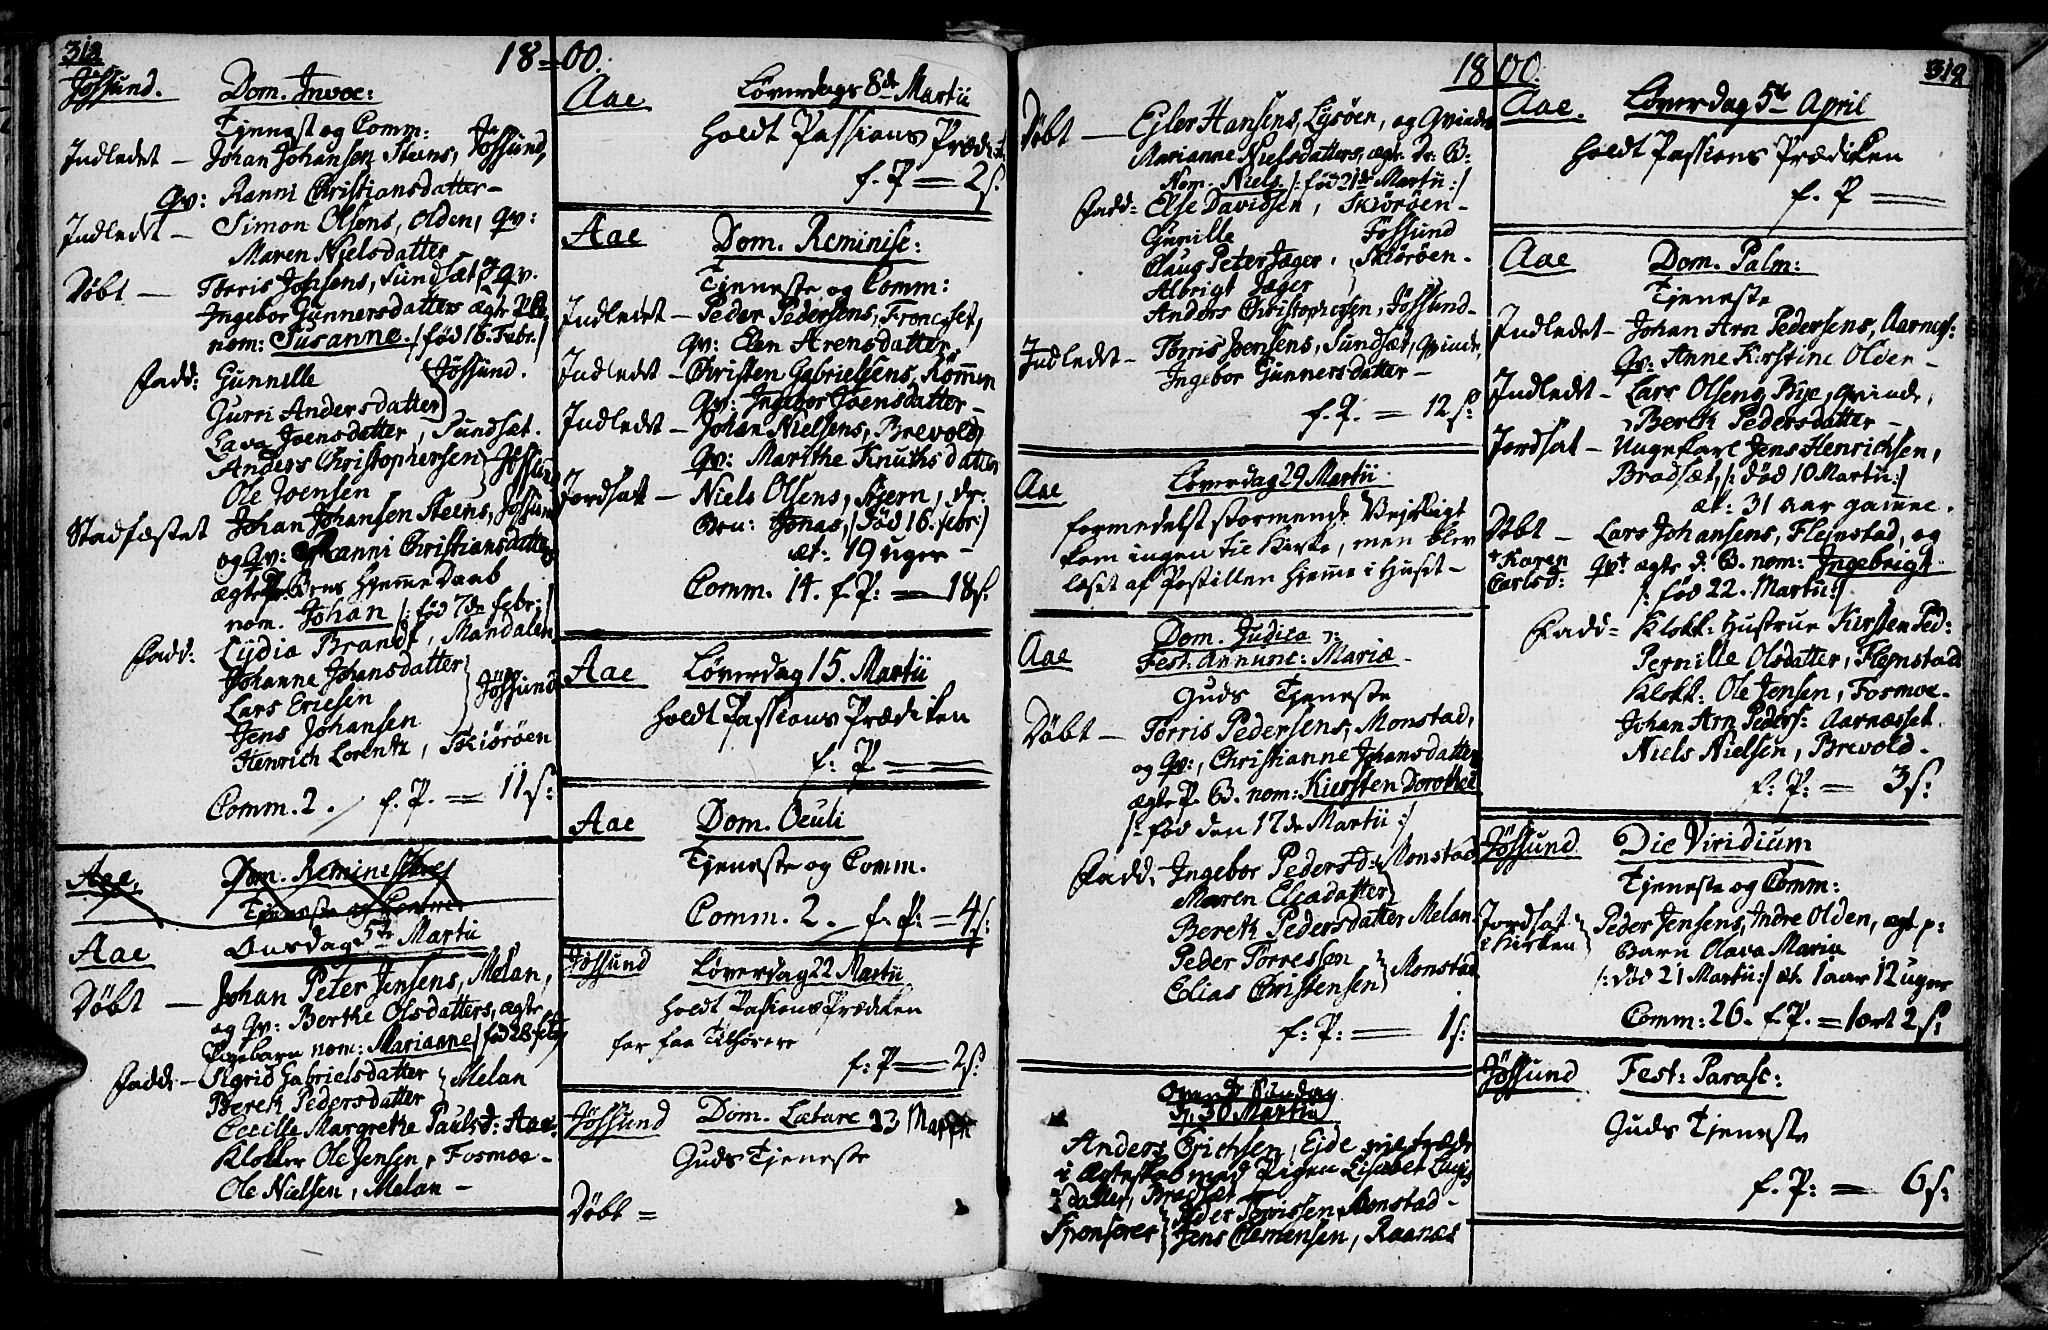 312
18=00.
Jössund. Dom. Invoc:
Tjenest og Comm:
Indledet – Johan Johansen Steens, Jössund,
qv: Ranni Christiansdatter –
Indledet – Simon Olsens, Olden, qv:
Maren Nielsdatter
Döbt – Torris Johsens, Sundsæt og qv.
Ingebor Gunnersdatters ægte P. B.
nom: Susanne. /: fød 16. Febr: /
Fadd: Gunnille
Jössund.
Gurri Andersdatter
Lava Joensdatter, Sundsæt.
Anders Christophersen
Jössund
Ole Joensen
Stadfæstet Johan Johansen Steens, Jössund
og qv: Ranni Christiansdatters
ægte Br: Børns Hjemme Daab
nom. Johan /: fød 7de febr: /
Fadd: Lydia Brandt, Mandalen
Johanne Johansdatter
Lars Ericsen
Jössund
Jens Johansen
Henrich Lorentz, Skiöröen
Comm. 2. f. P. = 11 s:
Aae. Dom. Reminiscere
Tjeneste og Comm.
Aae Onsdag 5te Martii
Döbt – Johan Peter Jensens, Melan,
og qv: Berthe Olsdatters, ægte
Pigebarn nom: Marianne / fød 28 feb /
Fadd – Sigrid Gabrielsdatter
Melan
Bereth Pedersdatter
Cecille Margrethe Pauls d: Aae.
Klokker Ole Jensen, Fosmoe –
Ole Nielsen, Melan –
Aae Löverdags 8de Martii
holdt Passions Prædik.
f. P = 2 s.
Aae Dom. Reminisc:
Tjeneste og Comm:
Indledet – Peder Pedersens, Froncset,
qv: Elen Arensdatter
Indledet – Christen Gabrielsens, Römmen
qv: Ingebor Joensdatter –
Indledet – Johan Nielsens, Brevold
qv: Marithe Knuthsdatter
Jordsat – Niels Olsens, Stjern, dr:
Brn: Jonas, / död 16. febr: /
æt: 19 uger –
Comm. 14. f. P: = 18 s.
Aae Löverdag 15. Martii
holdt Passions Prædiken
f: P — —
Aae Dom. Oculi
Tjeneste og Comm.
Comm. 2. f. P: = 4 s.
Jössund Löverdag 22 Martii
holdt Passions Prædiken
for faa Tilhörere
f: P = 2 s:
Jössund Dom. Lætare 23 Martii
Guds Tjeneste
Döbt =
18 00.
319
Döbt – Ejler Hansens, Lysöen, og Qvindes
Marianne Nielsdatters, ægte Dr: B:
Nom. Niels. /: fød 21de Martii :/
Fadd: Else Davidsen, Skiöröen –
Gunille Jössund
Claus Peter Jæger,
Skiöröen.
Albrigt Jæger
Anders Christophersen, Jössund –
Indledet – Torris Joensens, Sundsæt, Qvinde,
Ingebor Gunnersdatter –
f. P. = 12 s:
Aae Löverdag 29 Martii
formedelst stormende Vejrligt
kom ingen til Kirke, men blev
læset af Postillen hjeme i Huset –
Aae Dom. Judica ɔ:
Fest: Annunc: Mariæ.
Guds Tjeneste
Döbt – Torris Pedersens, Monstad,
og qv:, Christianne Johansdatter
ægte P. B. nom: Kiersten Dorothea
/: fød den 17de Martii :/
Fadd. Ingebor Peders d: Monstad
Maren Eliadatter
Bereth Pedersdatter Melan
Peder Torressen
Monstad
Elias Christensen
f: P: = 1 s:
30 Martii
Anders Erichsen, Ejde
i Ægteskab med Pigen Lisabet
datter, Bradsæt
Sponsores Peder Torrissen, Monstad –
Jens Clemensen, Raanæs
Aae. Löverdag 5te April
holdt Passions Prædiken
f. P =
Aae Dom. Palm:
Tjeneste
Indledet – Johan Arn Pedersens, Aarnes:
qv: Anne Kirstine Older –
Indledet – Lars Olsens, Bye, Qvinde,
Bereth Pedersdatter –
Jordsat – Ungekarl Jens Henrichsen,
Bradsæt, /: död 10 Martii :/
æt: 31 aar gamme.
Döbt – Lars Johansens, Flenstad, og
† Karen Carlsd: qv† ægte d: B. nom: Ingebrigt.
/: fød 22. Martii :/
Fadd = Klokk: Hustrue Kirsten Ped:
Pernille Olsdatter, Flenstad
Klokk: Ole Jensen, Fosmoe –
Johan Arn Peders: Aarnæsset
Niels Nielsen, Brevold –
f: P: = 3 s:
Jössund Die Viridium
Tjeneste og Comm:
Jordsat i Kirken Peder Jensens, Indre Olden, ægt p:
Barn Olava Maria
/: död 21 Martii :/ æt. 1 aar 12 uger
Comm: 26. f. P. = 1 ort 2 s:
Jössund Fest: Parasc:
Guds Tjeneste
f. P: = 6 s: